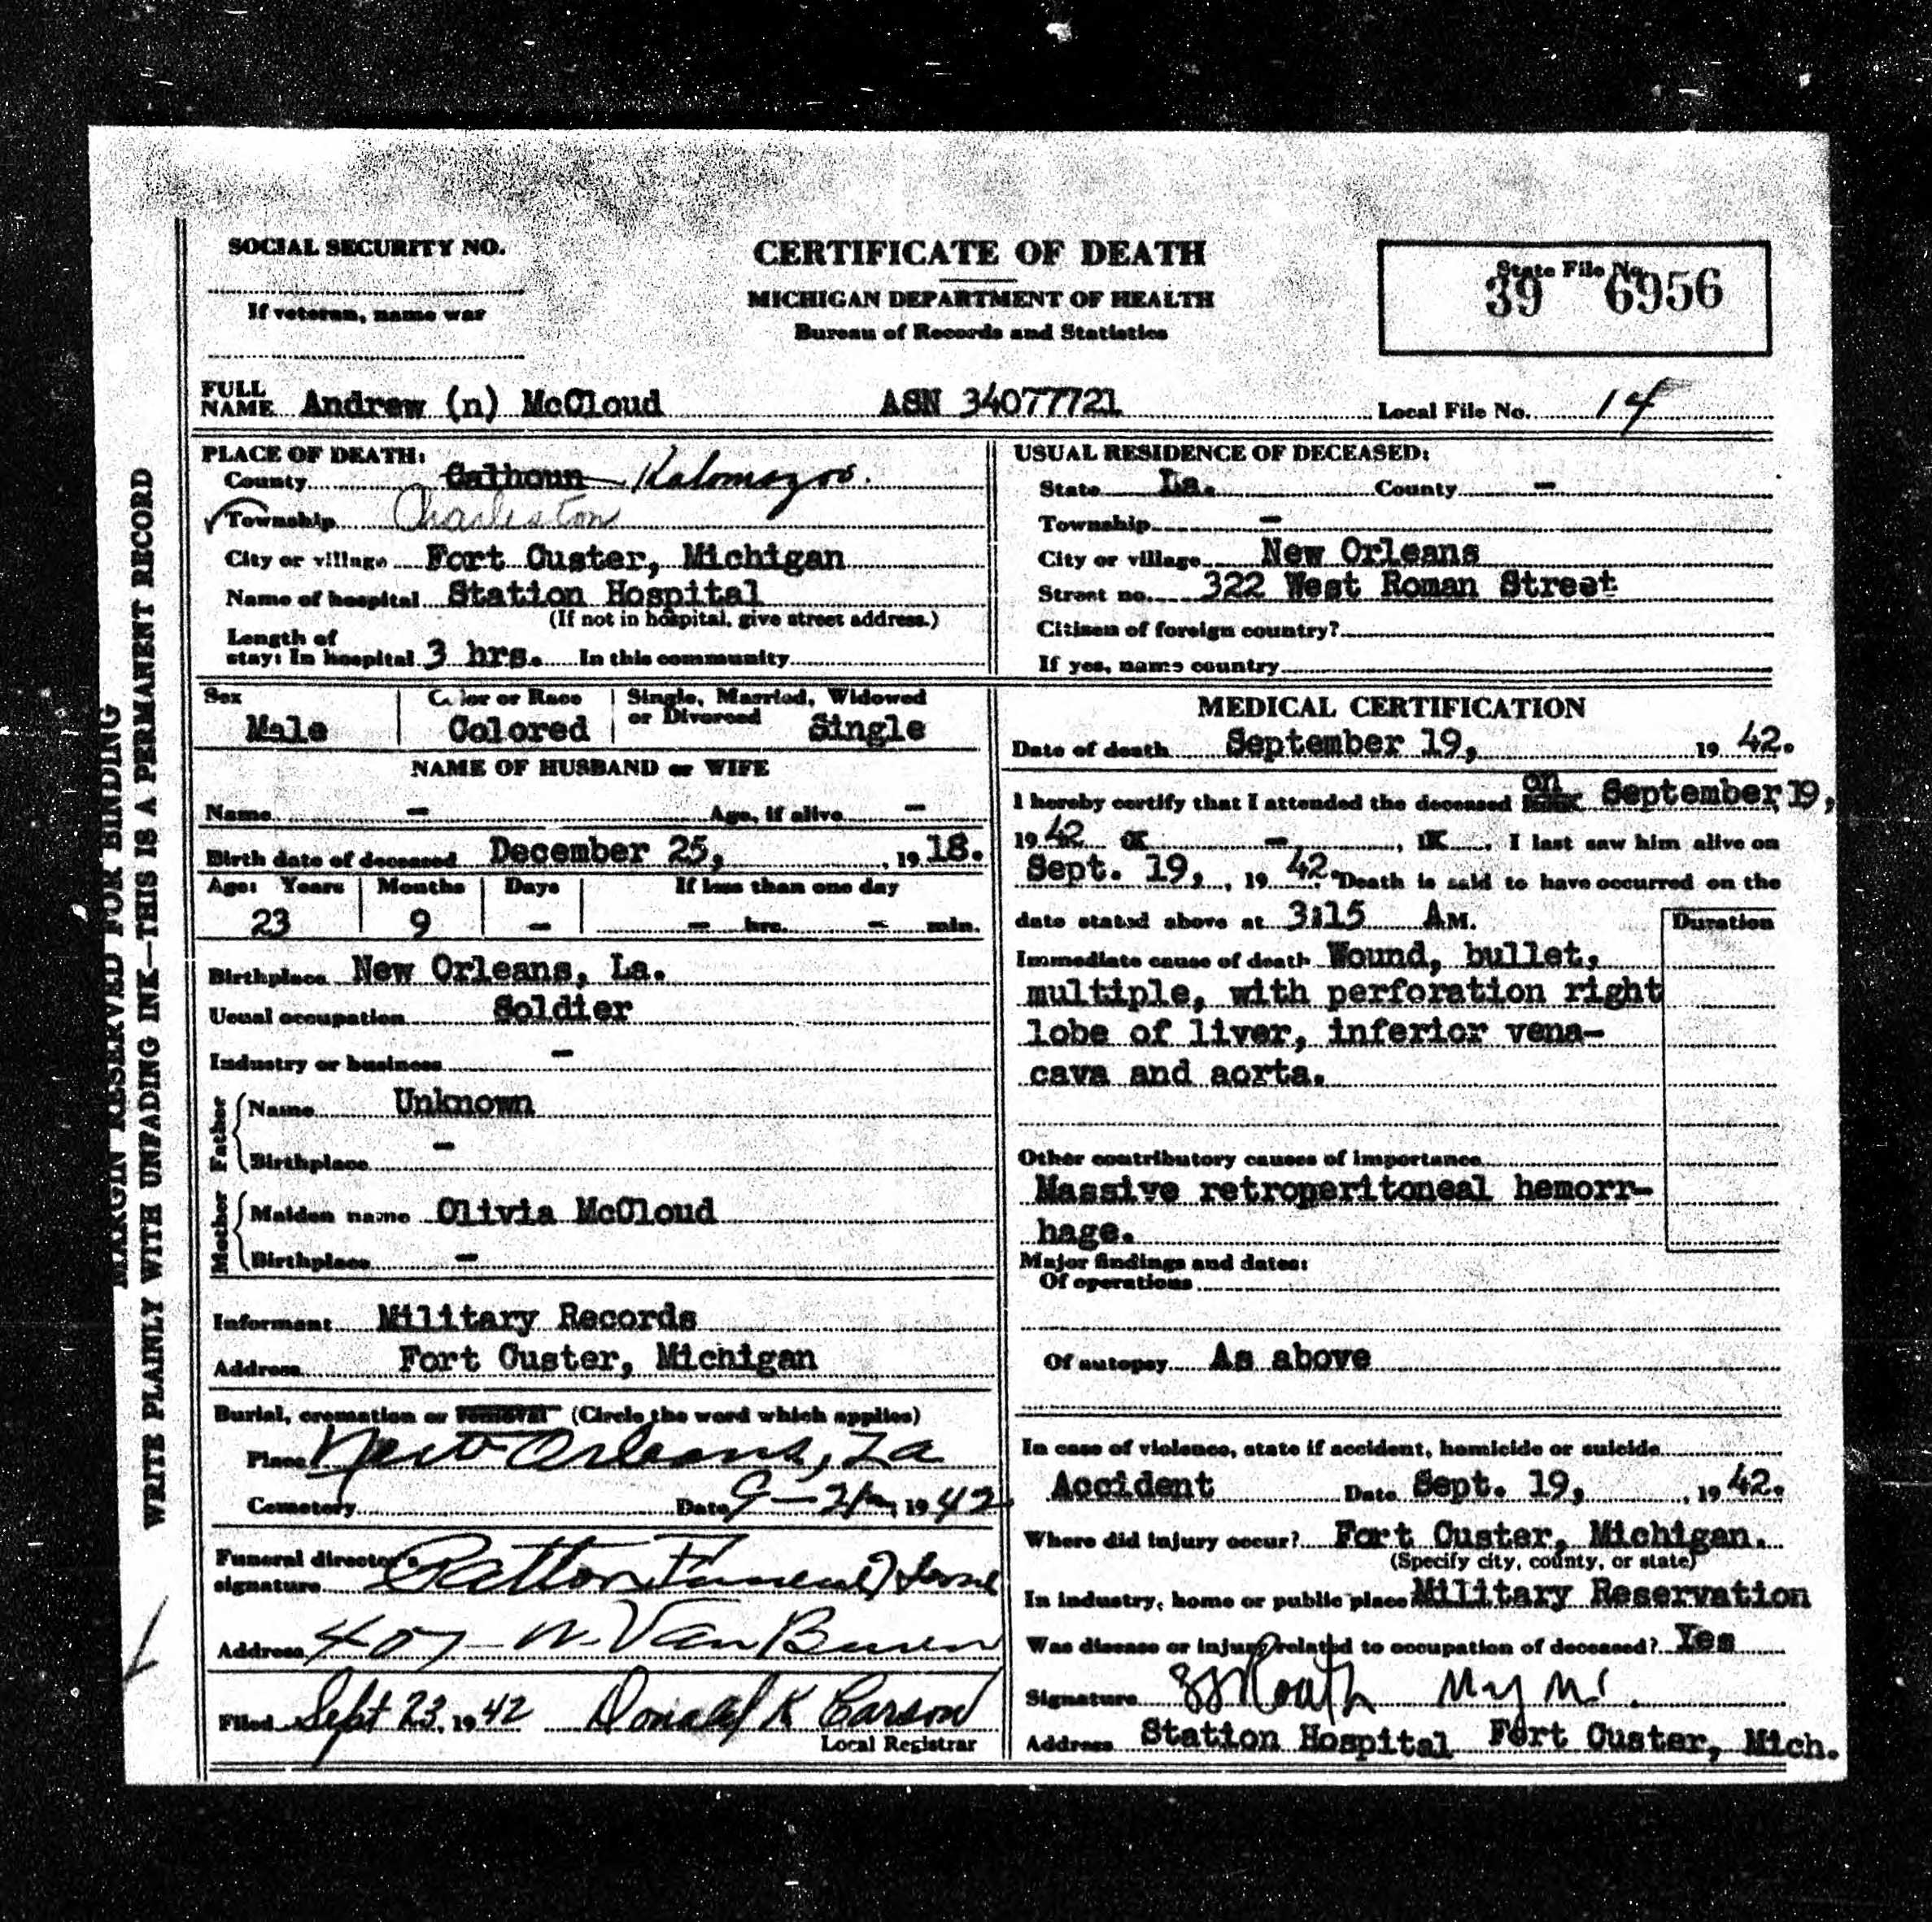 MARGIN RESERVED FOR BINDING
WRITE PLAINLY WITH UNFADING INK—THIS IS A PERMANENT RECORD
SOCIAL SECURITY NO.
If veteran, name war
CERTIFICATE OF DEATH
MICHIGAN DEPARTMENT OF HEALTH
Bureau of Records and Statistics
State File No.
39 6956
FULL NAME Andrew (n) McCloud ASN 34077721 Local File No. 14
PLACE OF DEATH:
County Calhoun Kalamazoo.
Township Charleston
City or village Fort Custer, Michigan
Name of hospital Station Hospital
(If not in hospital, give street address.)
Length of
stay: In hospital 3 hrs. In this community
USUAL RESIDENCE OF DECEASED:
State La. County -
Township -
City or village New Orleans
Street no. 322 West Roman Street
Citizen of foreign country?
If yes, name country
Sex Color or Race Single, Married, Widowed or Divorced
Male Colored Single
NAME OF HUSBAND or WIFE
Name - Age, if alive -
Birth date of deceased December 25, , 19 18.
Age: Years Months Days If less than one day
23 9 - - hrs. - min.
Birthplace New Orleans, La.
Usual occupation Soldier
Industry or business -
Father
Name Unknown
Birthplace -
Mother
Maiden name Olivia McCloud
Birthplace -
Informant Military Records
Address Fort Custer, Michigan
Burial, cremation or removal (Circle the word which applies)
Place New Orleans, La
Cemetery Date 9-21- 1942
Funeral director's
signature Patton Funeral Home
Address 407- W. Van Buren
Filed Sept 23, 1942 Donald K Carson
Local Registrar
MEDICAL CERTIFICATION
Date of death September 19, 19 42.
I hereby certify that I attended the deceased on September 19,
19 42 - , . I last saw him alive on
Sept. 19, , 19 42. Death is said to have occurred on the
date stated above at 3:15 AM.
Duration
Immediate cause of death Wound, bullet,
multiple, with perforation right
lobe of liver, inferior vena-
cava and aorta.
Other contributory causes of importance
Massive retroperitoneal hemorr-
hage.
Major findings and dates:
Of operations
Of autopsy As above
In case of violence, state if accident, homicide or suicide
Accident Date Sept. 19, , 19 42.
Where did injury occur? Fort Custer, Michigan.
(Specify city, county, or state)
In industry, home or public place Military Reservation
Was disease or injury related to occupation of deceased? Yes
Signature
Address Station Hospital Fort Custer, Mich.